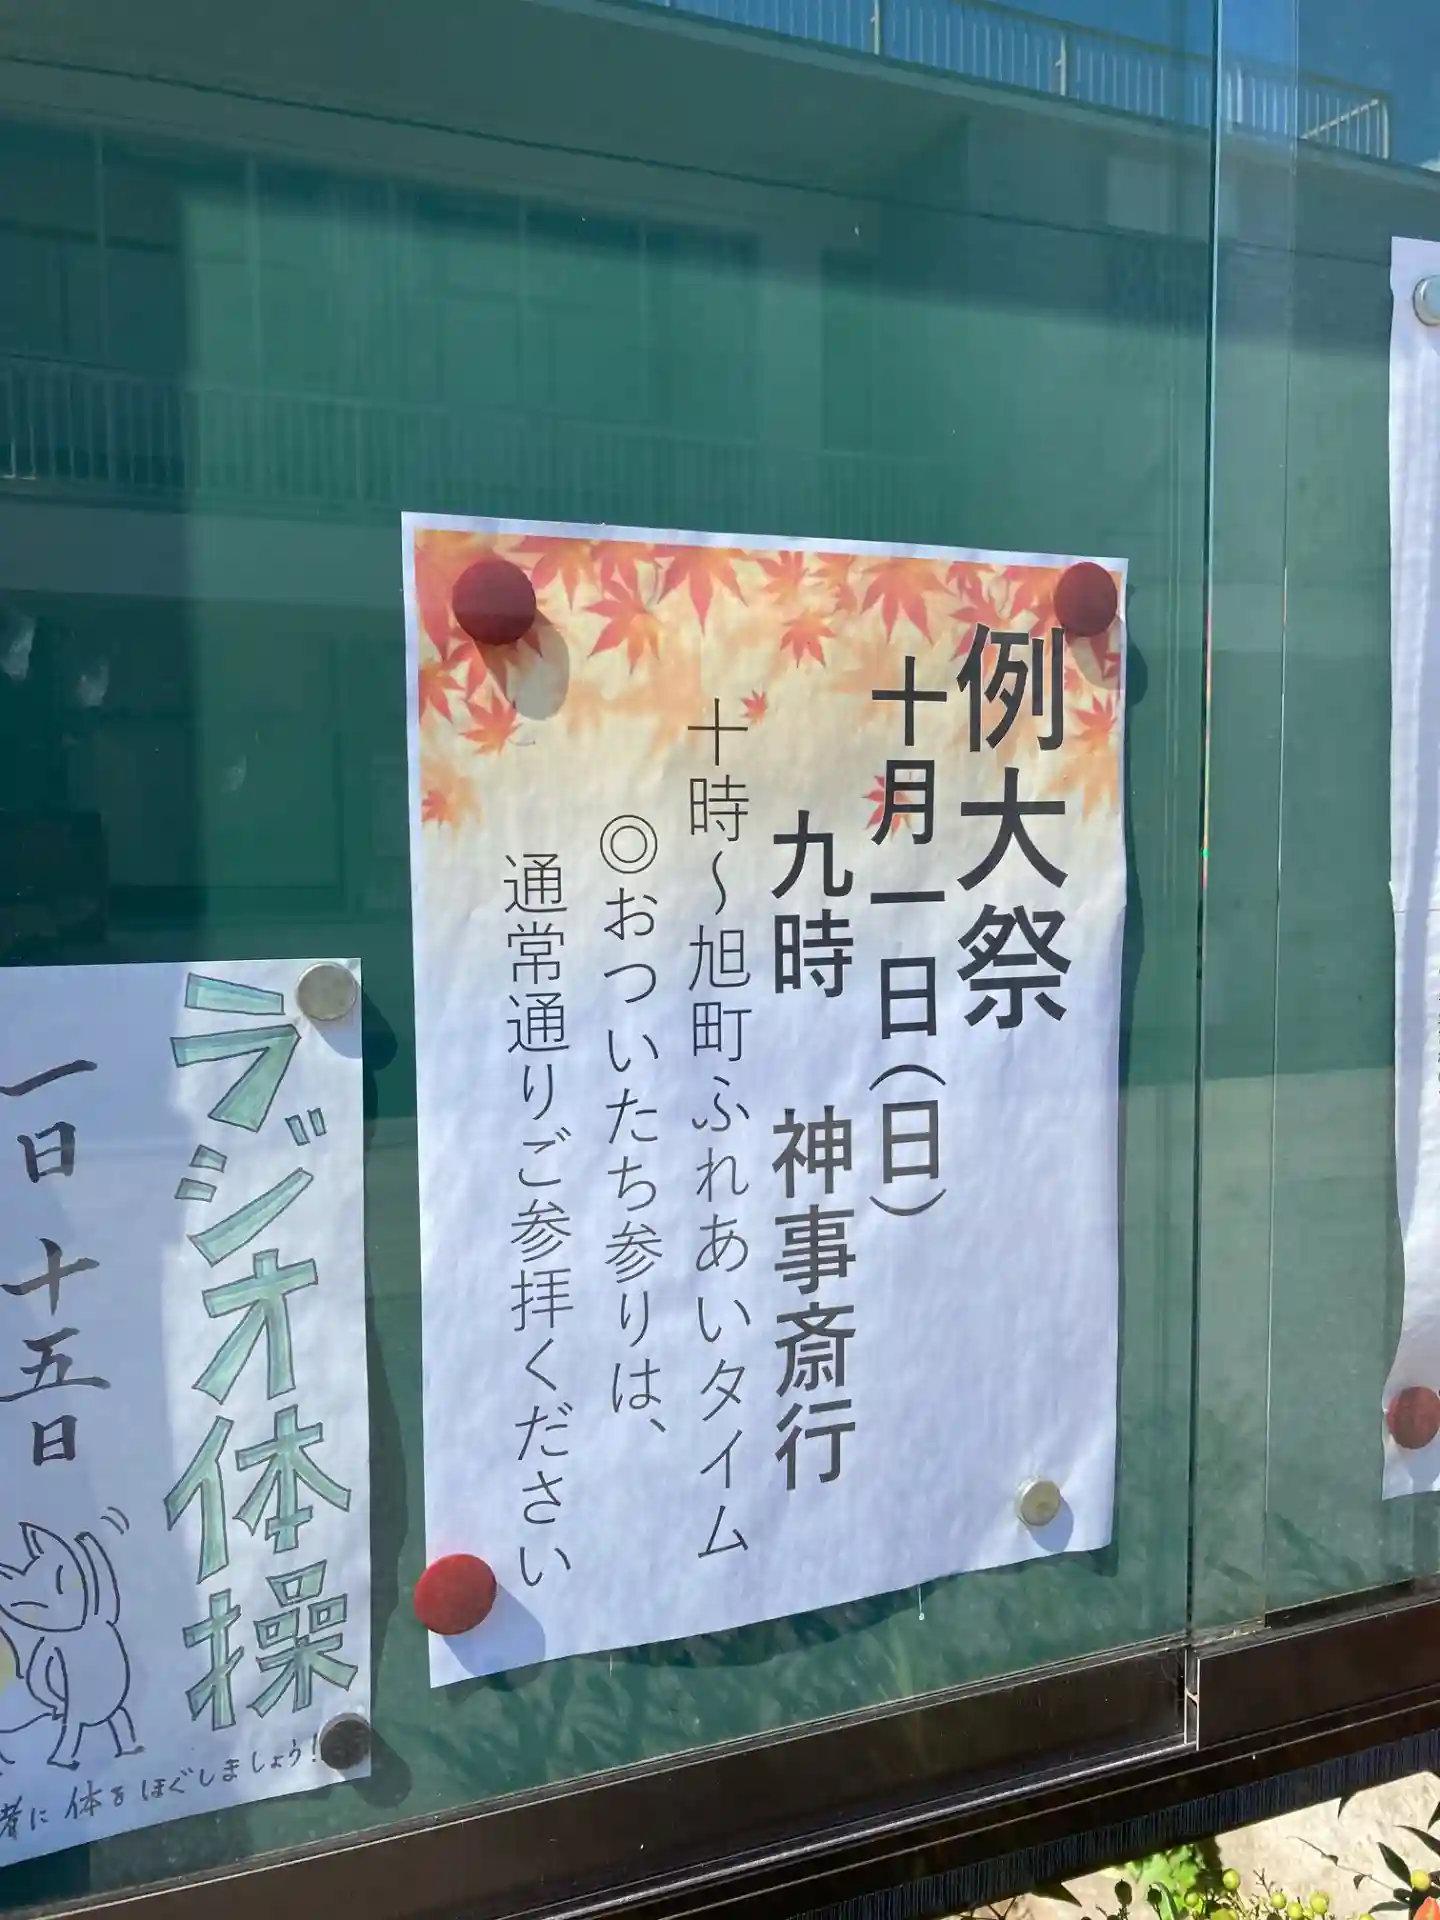 例大祭
十月一日(日)
九時　神事斎行
十時~旭町ふれあいタイム
◎おついたち参りは、
通常通りご参拝ください
ラジオ体操
一日 十五日
者に 体をほぐしましょう!